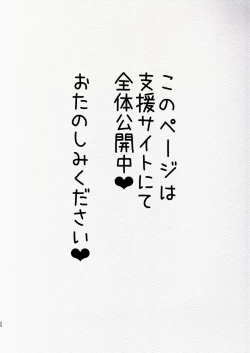 このページは
支援サイトにて
全体公開中♥
おたのしみください♥